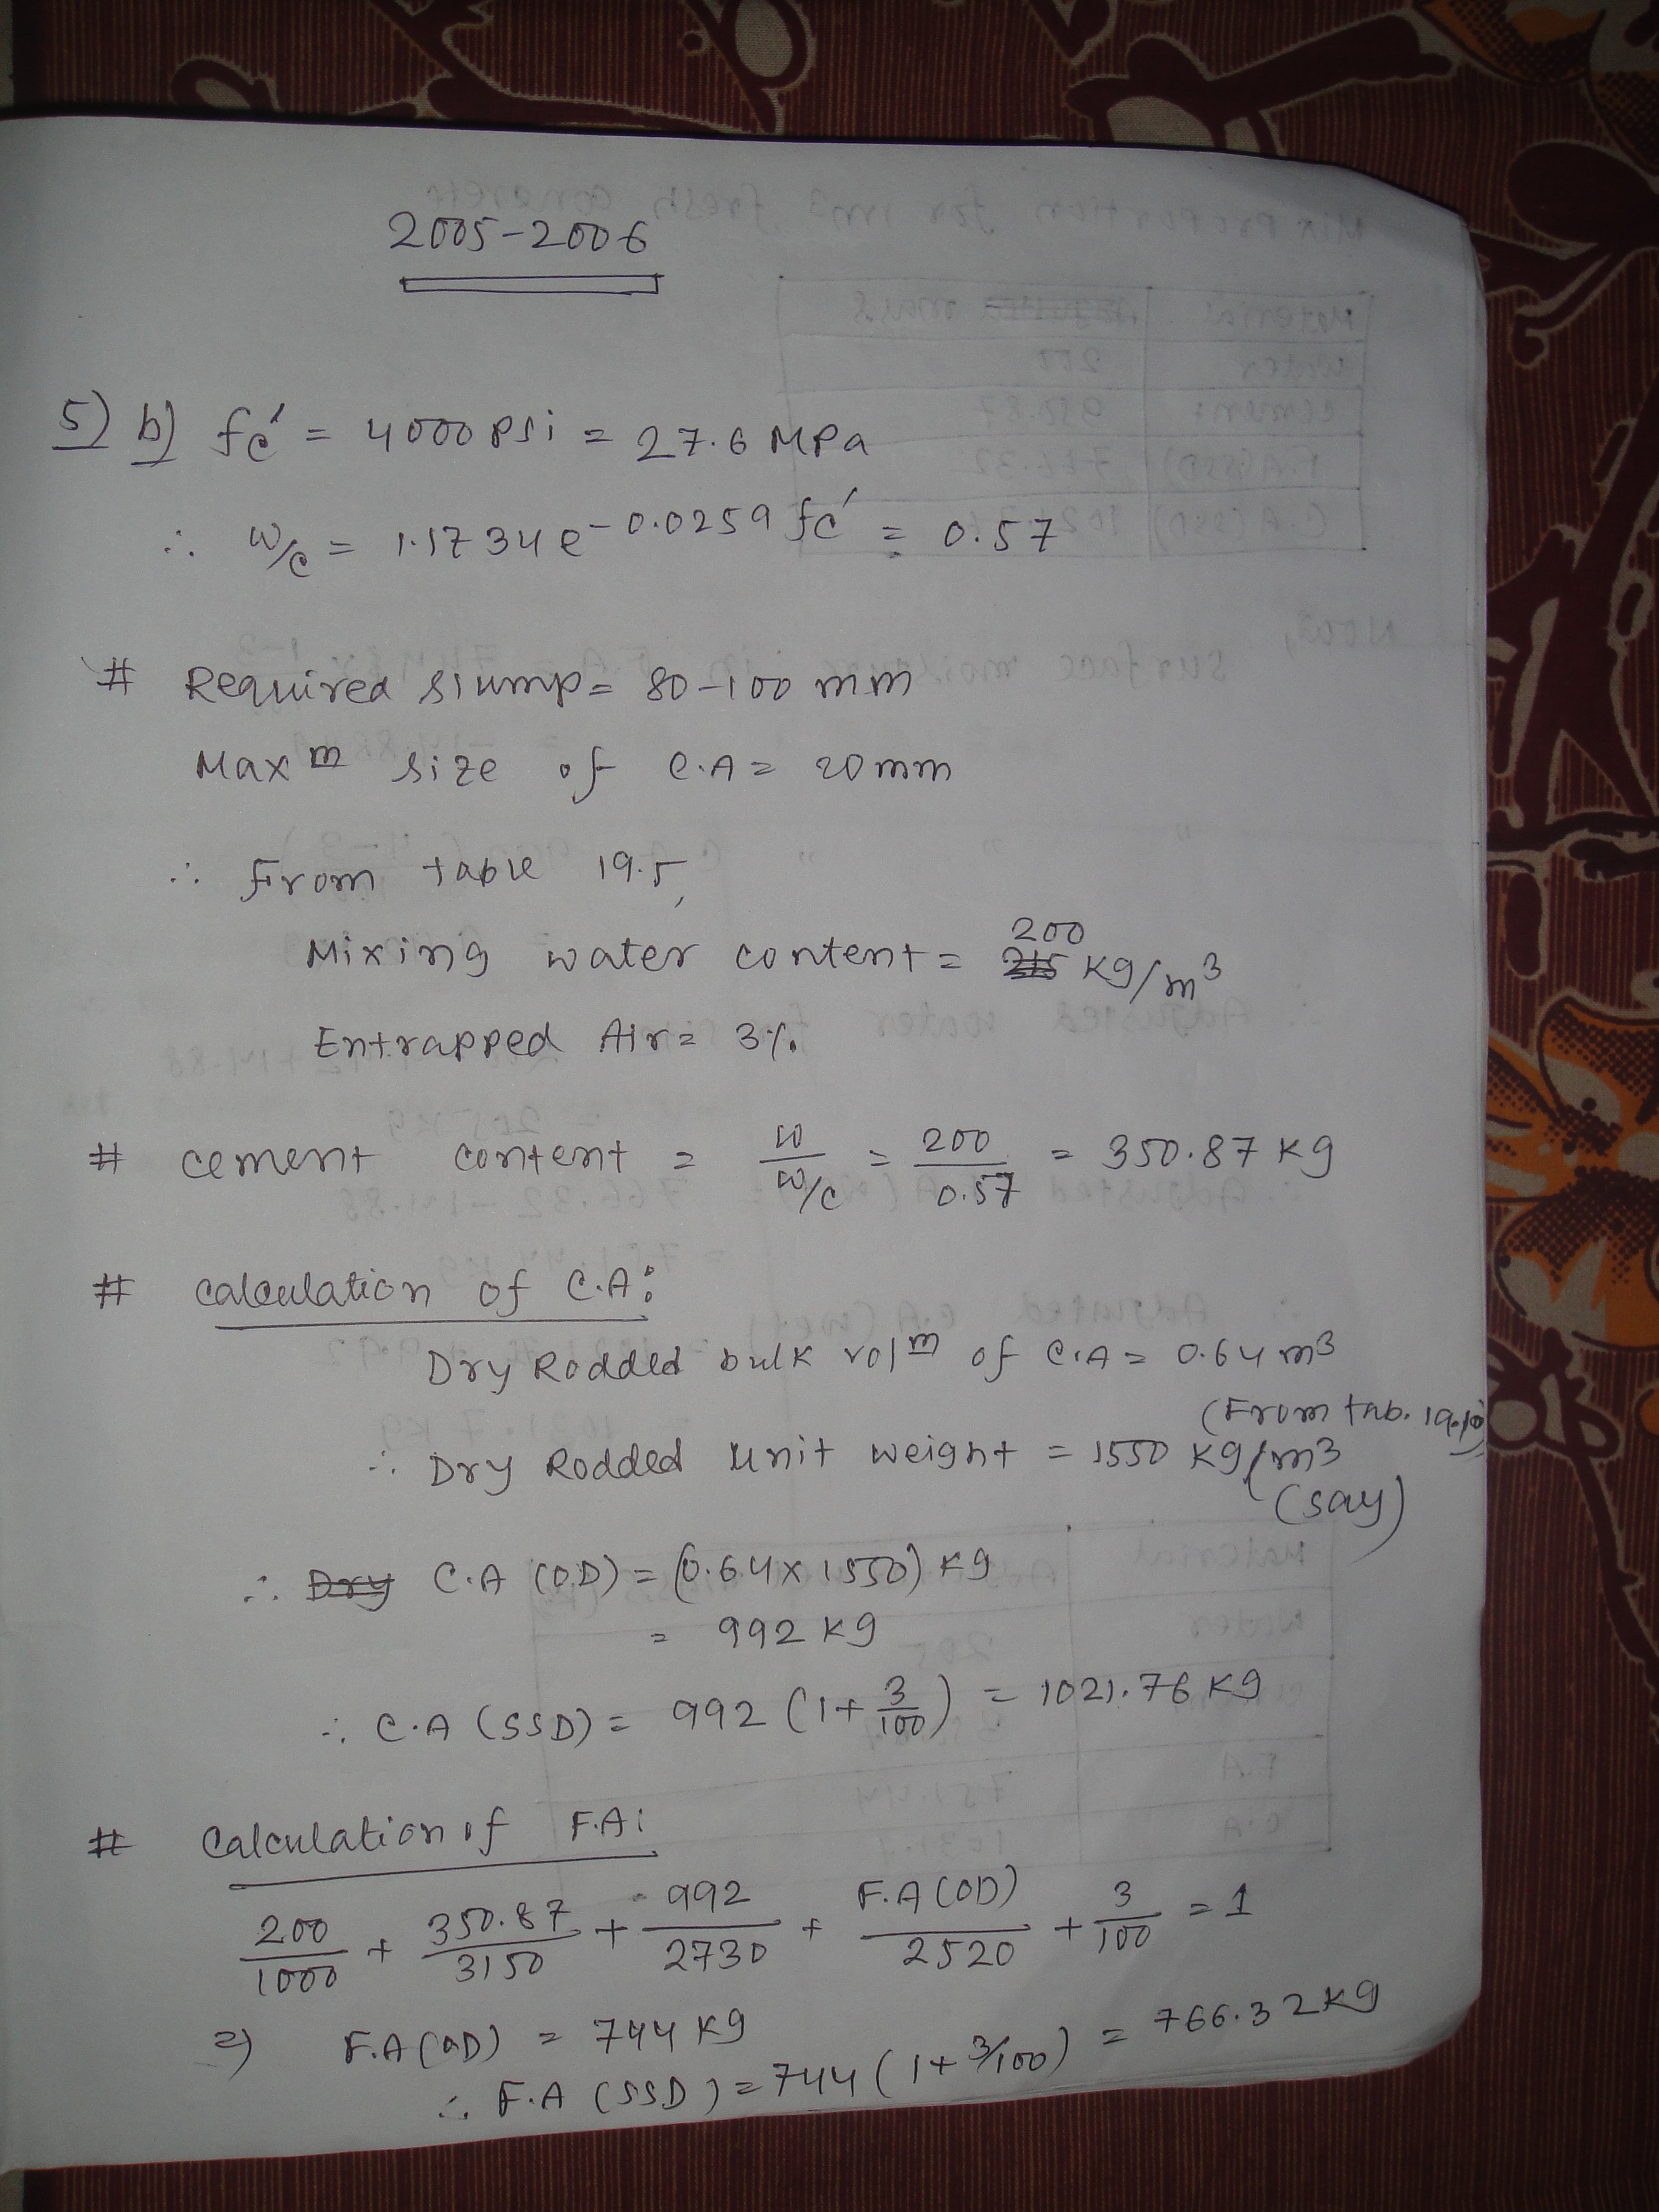 2005-2006
5) b) fc' = 4000 psi = 27.6 MPa
∴ w/c = 1.1734 e^-0.0259 fc' = 0.57
# Required slump = 80-100 mm
Max^m size of C.A = 20mm
∴ From table 19.5,
200
Mixing water content = 215 kg/m^3
Entrapped Air = 3%
# cement content = W / w/c = 200/0.57 = 350.87 kg
# calculation of C.A:
Dry Rodded bulk vol^m of C.A = 0.64 m^3
(From tab. 19.10)
∴ Dry Rodded unit weight = 1550 kg/m^3
(say)
∴ Dry C.A (OD) = (0.64 x 1550) kg
= 992 kg
∴ C.A (SSD) = 992 (1 + 3/100) = 1021.76 kg
# calculation of F.A:
200/1000 + 350.87/3150 + 992/2730 + F.A (OD)/2520 + 3/100 = 1
⇒ F.A (OD) = 744 kg
∴ F.A (SSD) = 744 (1 + 3/100) = 766.32 kg